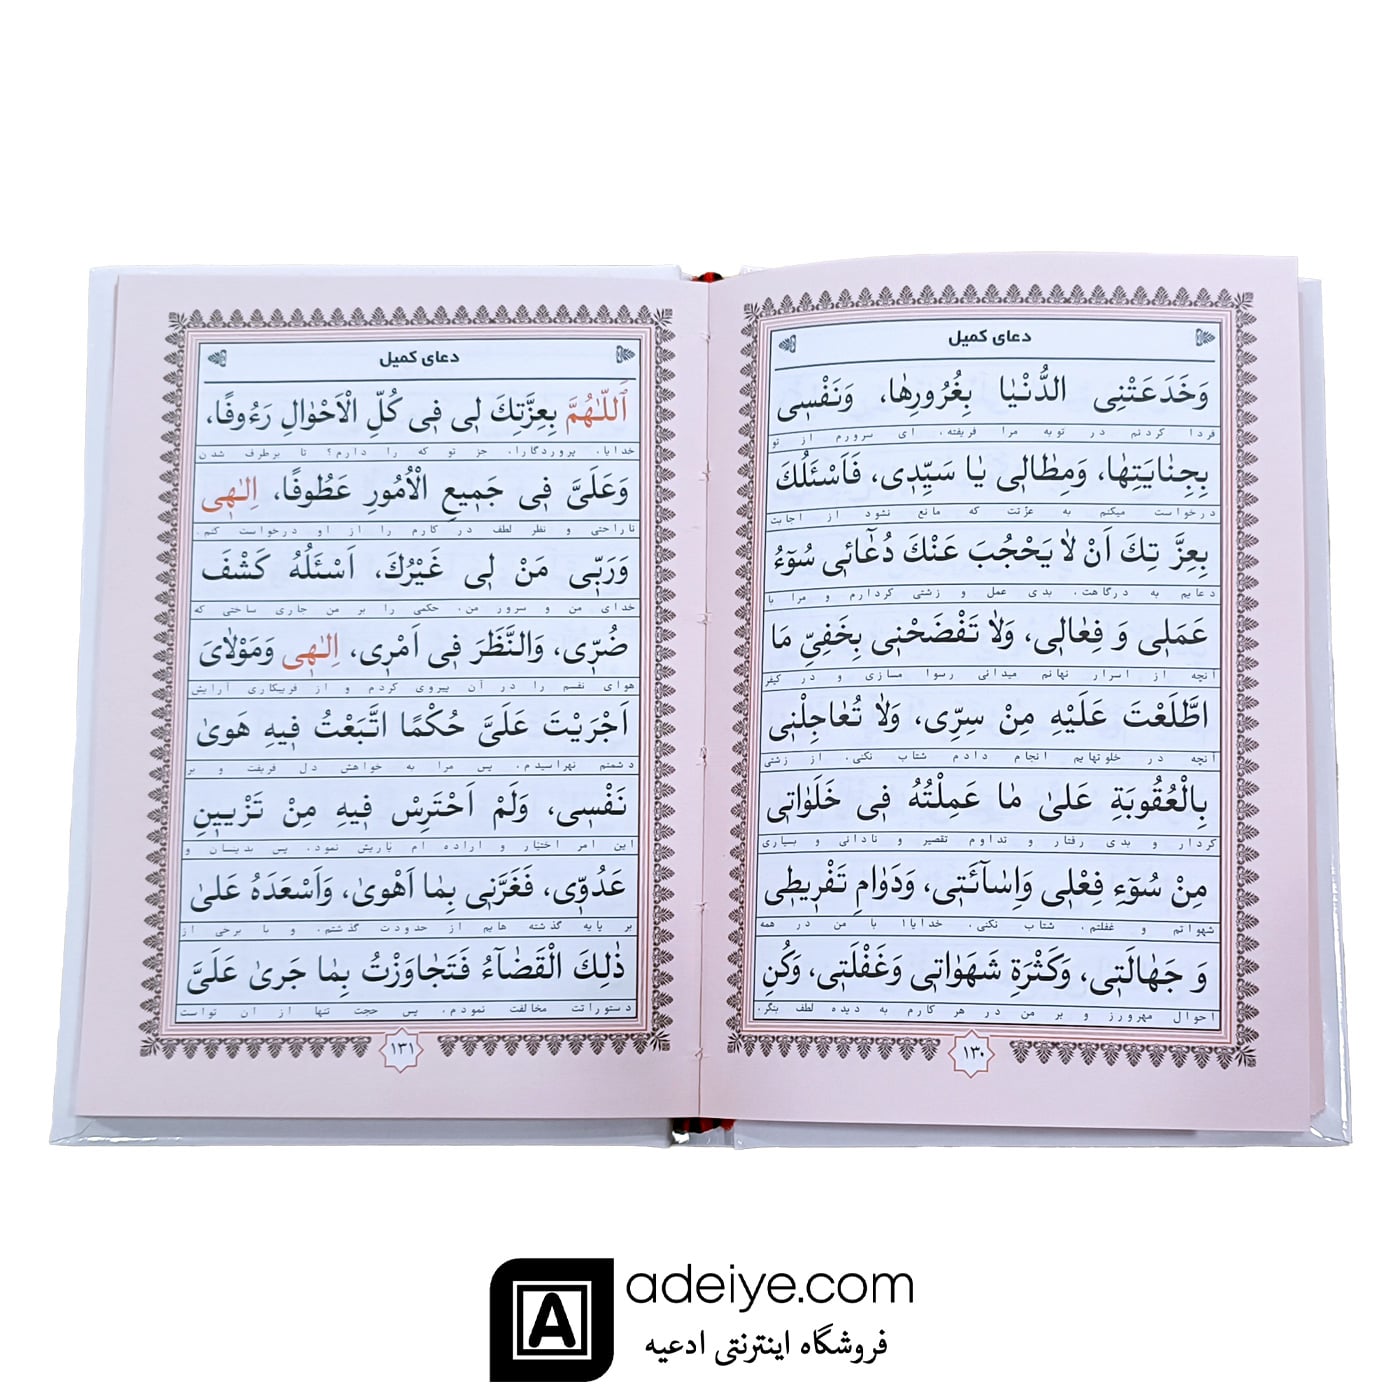 دعای کمیل
وَخَدَعَتْنِی الدُّنْیٰا بِغُرُورِهٰا، وَنَفْسِی
فردا کردنم در توبه مرا فریفته. ای سرورم از تو
بِجِنٰایَتِهٰا، وَمِطٰالِی یٰا سَیِّدِی، فَاَسْئَلُكَ
درخواست میکنم به عزّتت که مانع نشود از اجابت
بِعِزَّ تِكَ اَنْ لٰا یَحْجُبَ عَنْكَ دُعٰائِی سُوٓءُ
دعایم به درگاهت. بدی عمل و زشتی کردارم و مرا با
عَمَلِی وَ فِعٰالِی، وَلٰا تَفْضَحْنِی بِخَفِیِّ مَا
آنچه از اسرار نهانم میدانی رسوا مسازی و در کیفر
اطَّلَعْتَ عَلَیْهِ مِنْ سِرِّی، وَلٰا تُعٰاجِلْنِی
آنچه در خلوتهایم انجام دادم شتاب نکنی. از زشتی
بِالْعُقُوبَةِ عَلیٰ مٰا عَمِلْتُهُ فِی خَلَوٰاتِی
کردار و بدی رفتار و تداوم تقصیر و نادانی و بسیاری
مِنْ سُوٓءِ فِعْلِی وَاِسٰآئَتِی، وَدَوٰامِ تَفْرِیطِی
شهواتم و غفلتم. شتاب نکنی. خدایا! با من در همه
وَ جَهٰالَتِی، وَکَثْرَةِ شَهَوٰاتِی وَغَفْلَتِی، وَکُنِ
احوال مهرورز و بر من در هر کارم به دیده لطف بنگر.
۱۳۰
دعای کمیل
اَللّٰهُمَّ بِعِزَّتِكَ لِی فِی کُلِّ الْاَحْوٰالِ رَءُوفًا،
خدایا. پروردگارا. جز تو که را دارم؟ تا برطرف شدن
وَعَلَیَّ فِی جَمِیعِ الْاُمُورِ عَطُوفًا، اِلٰهِی
ناراحتی و نظر لطف در کارم را از او درخواست کنم.
وَرَبِّی مَنْ لِی غَیْرُكَ، اَسْئَلُهُ کَشْفَ
خدای من و سرور من. حکمی را بر من جاری ساختی که
ضُرِّی، وَالنَّظَرَ فِی اَمْرِی، اِلٰهِی وَمَوْلٰایَ
هوای نفسم را در آن پیروی کردم و از فریبکاری آرایش
اَجْرَیْتَ عَلَیَّ حُکْمًا اتَّبَعْتُ فِیهِ هَویٰ
دشمنم نهراسیدم. پس مرا به خواهش دل فریفت و بر
نَفْسِی، وَلَمْ اَحْتَرِسْ فِیهِ مِنْ تَزْیِینِ
این امر اختیار و اراده ام یاریش نمود. پس بدینسان و
عَدُوِّی، فَغَرَّنِی بِمٰا اَهْویٰ، وَاَسْعَدَهُ عَلیٰ
بر پایه گذشته هایم از حدودت گذشتم. و با برخی از
ذٰلِكَ الْقَضٰآءُ فَتَجٰاوَزْتُ بِمٰا جَریٰ عَلَیَّ
دستوراتت مخالفت نمودم. پس حجت تنها از آن تواست
۱۳۱
A adeiye.com
فروشگاه اینترنتی ادعیه